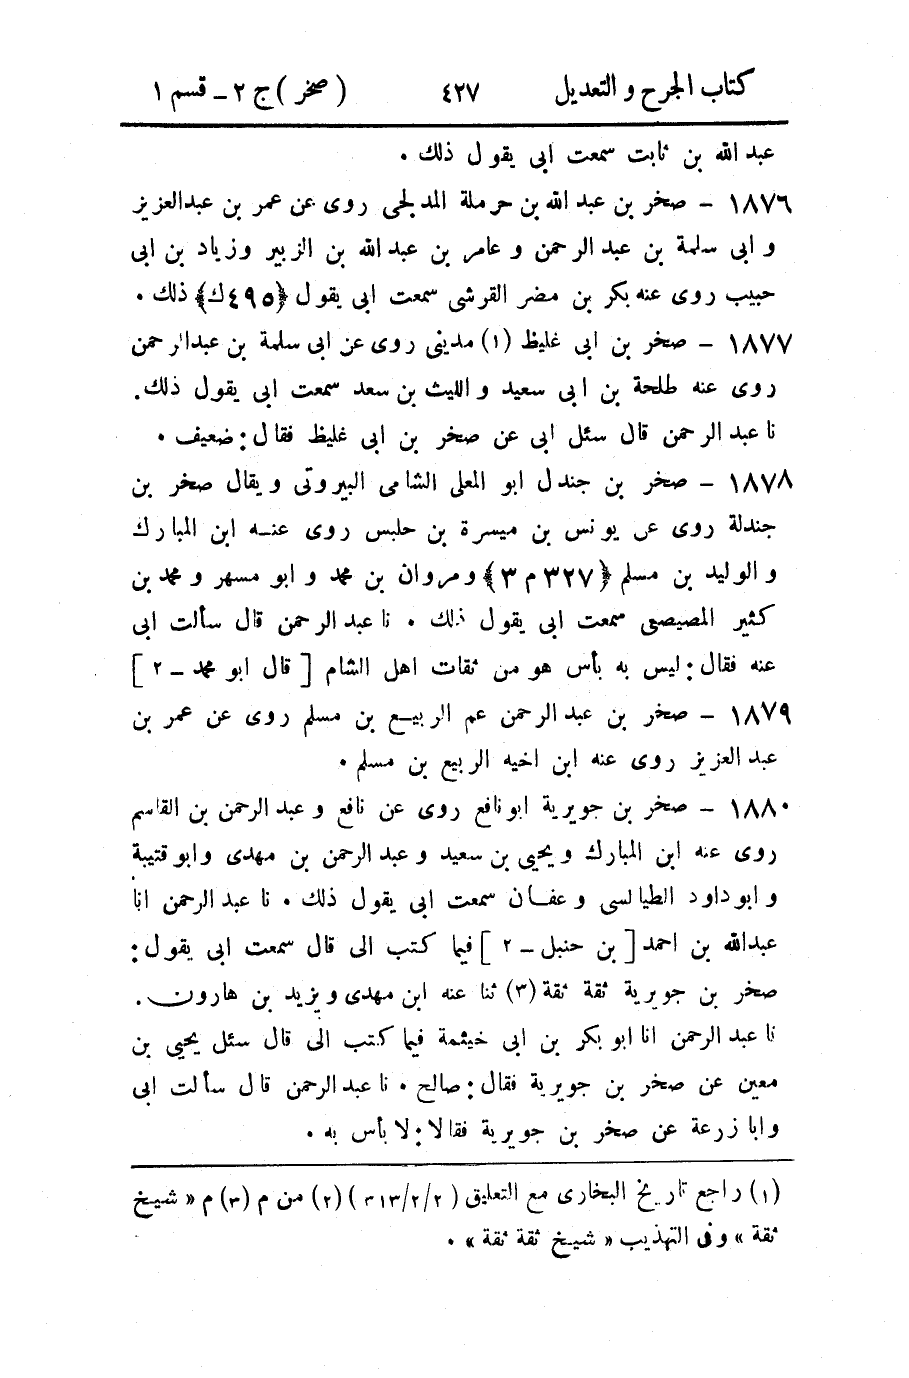 كتاب الجرح والتعديل ٤٢٧ (صخر) ج ٢ - قسم ١
عبد الله بن ثابت سمعت ابى يقول ذلك .
١٨٧٦ - صخر بن عبد الله بن حرملة المدلجى روى عن عمر بن عبدالعزيز
و ابى سلمة بن عبد الرحمن و عامر بن عبد الله بن الزبير وزياد بن ابى
حبيب روى عنه بكر بن مضر القرشى سمعت ابى يقول ﴿٤٩٥ك﴾ ذلك .
١٨٧٧ - صخر بن ابى غليظ (١) مدينى روى عن ابى سلمة بن عبدالرحمن
روى عنه طلحة بن ابى سعيد و الليث بن سعد سمعت ابى يقول ذلك.
نا عبد الرحمن قال سئل ابى عن صخر بن ابى غليظ فقال: ضعيف .
١٨٧٨ - صخر بن جندل ابو المعلى الشامى البيروتى و يقال صخر بن
جندلة روى عن يونس بن ميسرة بن حلبس روى عنه ابن المبارك
و الوليد بن مسلم ﴿٣٢٧ م ٣﴾ و مروان بن محمد و ابو مسهر و محمد بن
كثير المصيصى سمعت ابى يقول ذلك . نا عبد الرحمن قال سألت ابى
عنه فقال: ليس به بأس هو من ثقات اهل الشام [ قال ابو محمد - ٢ ]
١٨٧٩ - صخر بن عبد الرحمن عم الربيع بن مسلم روى عن عمر بن
عبد العزيز روى عنه ابن اخيه الربيع بن مسلم .
١٨٨٠ - صخر بن جويرية ابو نافع روى عن نافع و عبد الرحمن بن القاسم
روى عنه ابن المبارك و يحيى بن سعيد و عبد الرحمن بن مهدى وابو قتيبة
و ابو داود الطيالسى و عفان سمعت ابى يقول ذلك . نا عبد الرحمن انا
عبدالله بن احمد [ بن حنبل - ٢ ] فيما كتب الى قال سمعت ابى يقول:
صخر بن جويرية ثقة ثقة (٣) ثنا عنه ابن مهدى و يزيد بن هارون.
نا عبد الرحمن انا ابو بكر بن ابى خيثمة فيما كتب الى قال سئل يحيى بن
معين عن صخر بن جويرية فقال: صالح . نا عبد الرحمن قال سألت ابى
وابا زرعة عن صخر بن جويرية فقالا: لا بأس به .
(١) راجع تاريخ البخارى مع التعليق (٣١٣/٢/٢) (٢) من م (٣) م « شيخ
ثقة » وفى التهذيب « شيخ ثقة ثقة » .